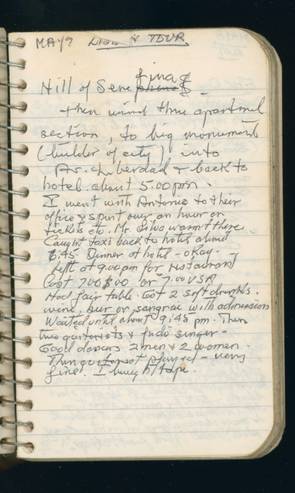 MAY 9 LISB & TOUR
fina
Hill of Sene
then wind thru apartment
section, to big monument
(builder of city) into
Av. Liberdad & back to
hotel about 5:00 pm.
I went with Antonio to their
office & spent over an hour on
tickets etc. Mr Silva wasn't there.
Caught taxi back to hotel about
6:45 Dinner at hotel - okay.
left at 9:00 pm for restaurant
Cost 700$00 or 7.00 US
Had fair table Got 2 soft drinks,
wine, or sangria with admission
Waited until about 9:45 pm. Then
two guitarists & fado singer -
Good dancers 2 men & 2 women.
Then guitarist played - very
fine. I bought tape.